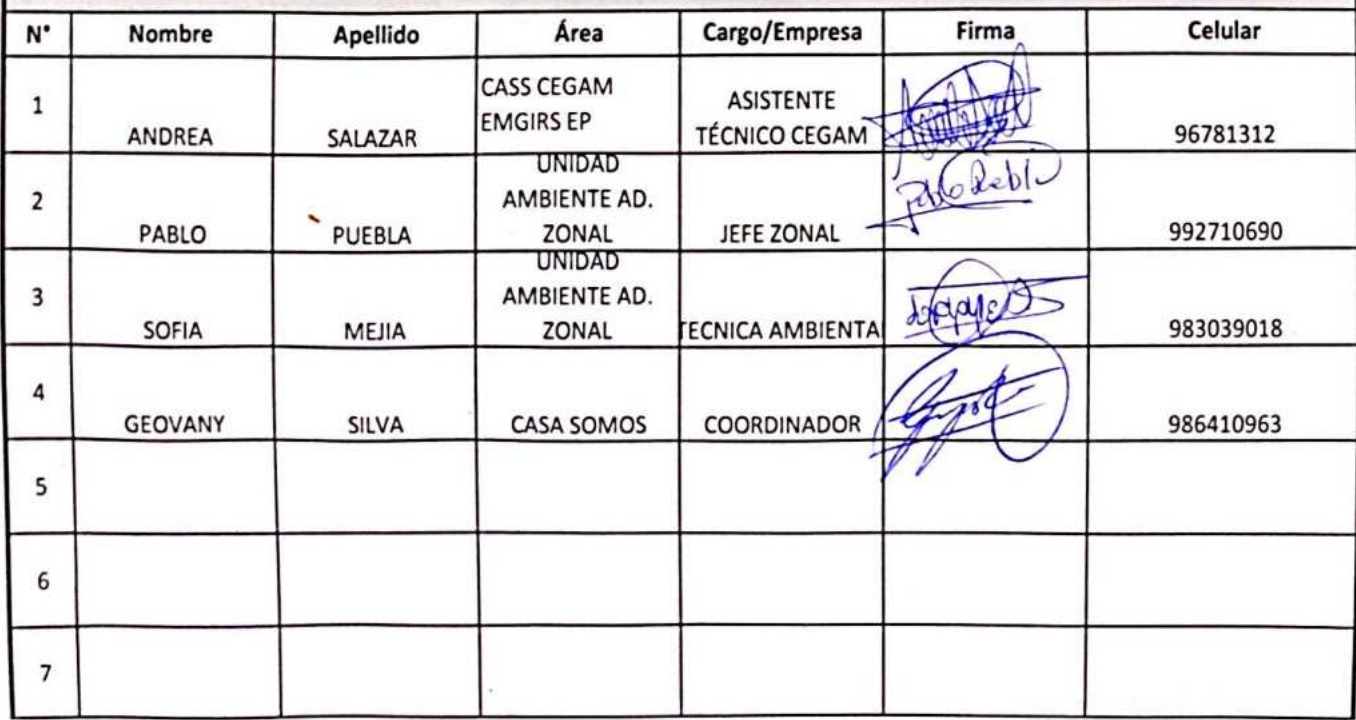 N° Nombre Apellido Área Cargo/Empresa Firma Celular
1 ANDREA SALAZAR CASS CEGAM EMGIRS EP ASISTENTE TÉCNICO CEGAM 96781312
2 PABLO PUEBLA UNIDAD AMBIENTE AD. ZONAL JEFE ZONAL Pablo Puebla 992710690
3 SOFIA MEJIA UNIDAD AMBIENTE AD. ZONAL TECNICA AMBIENTA 983039018
4 GEOVANY SILVA CASA SOMOS COORDINADOR 986410963
5
6
7